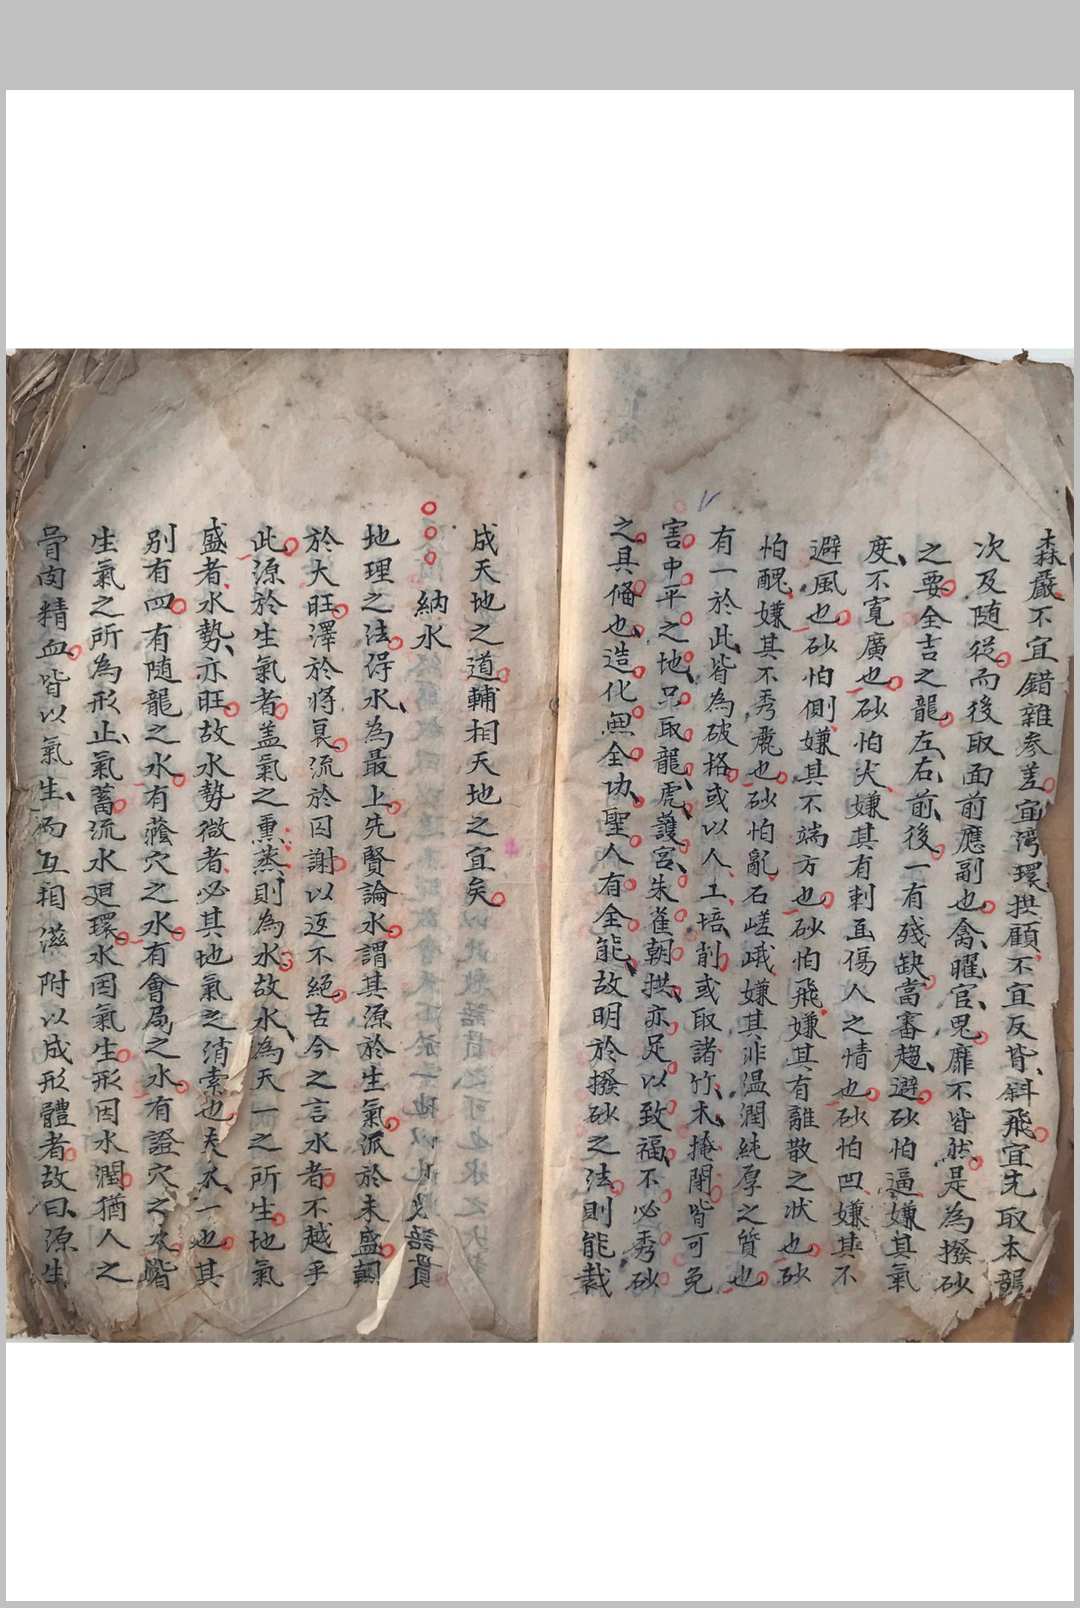 森嚴不宜錯雜參差宜灣環拱顧不宜反背斜飛宜先取本龍
次及随從而後取面前應副也禽曜官鬼靡不皆然是為撥砂
之要全吉之龍左右前後一有殘缺當審趨避砂怕逼嫌其氣
度不寬廣也砂怕尖嫌其有刺面傷人之情也砂怕凹嫌其不
避風也砂怕側嫌其不端方也砂怕飛嫌其有離散之状也砂
怕醜嫌其不秀麗也砂怕亂石嵯峨嫌其非温潤純厚之質也
有一於此皆為破格或以人工培削或取諸竹木掩閉皆可免
害中平之地只取龍虎護宮朱雀朝拱亦足以致福不必秀砂
之具俻也造化無全功聖人有全能故明於撥砂之法則能裁
成天地之道輔相天地之宜矣
納水
地理之法得水為最上先賢論水謂其源於生氣派於未盛朝
於大旺澤於將衰流於囚謝以返不絕古今之言水者不越乎
此源於生氣者盖氣之熏蒸則為水故水為天一之所生地氣
盛者水勢亦旺故水勢微者必其地氣之消索也夫水一也其
别有四有随龍之水有蔭穴之水有會局之水有證穴之水皆
生氣之所為形止氣蓄流水廻環水因氣生形因水潤猶人之
骨肉精血皆以氣生而互相滋附以成形體者故曰源生